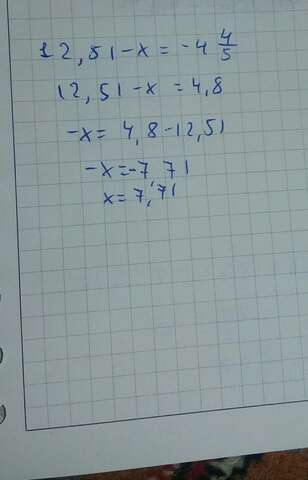 12,51-x=-4 4/5
12,51-x=4,8
-x=4,8-12,51
-x=-7,71
x=7,71